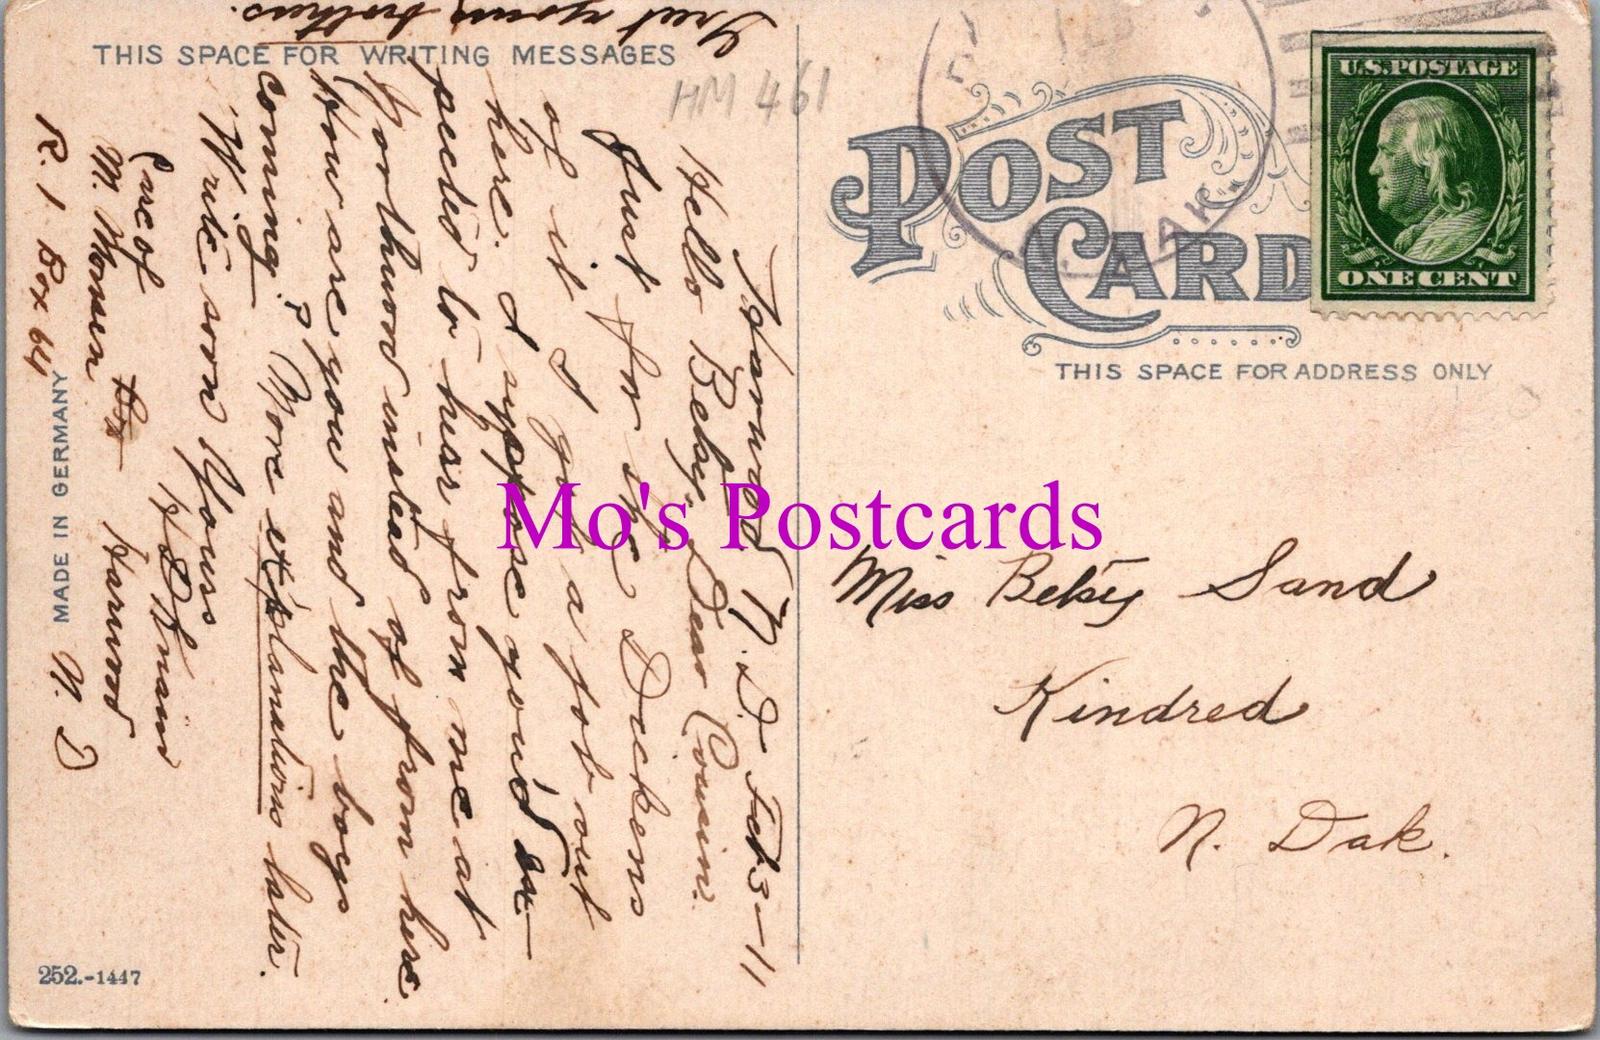 THIS SPACE FOR WRITING MESSAGES
HM. 461
POST
CARD
U.S. POSTAGE
ONE CENT
THIS SPACE FOR ADDRESS ONLY
Miss Betsy Sand
Kindred
N. Dak.
Harwood N. D. Feb 3-11
Hello Betsy, Dear Cousin.
Just for the Dickens
of it I got a job out
here. I suppose you'd ex-
pected to hear from me at
Northwood instead of from here.
How are you and the boys
coming? More explanations later.
Write soon Yours
Care of
M. Monsen Harwood
R. 1 Box 64 N. D
Greet your brothers.
MADE IN GERMANY
252.-1447
Mo's Postcards